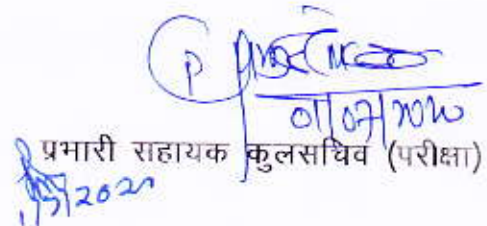 P
01/07/2020
प्रभारी सहायक कुलसचिव (परीक्षा)
1/7/2020